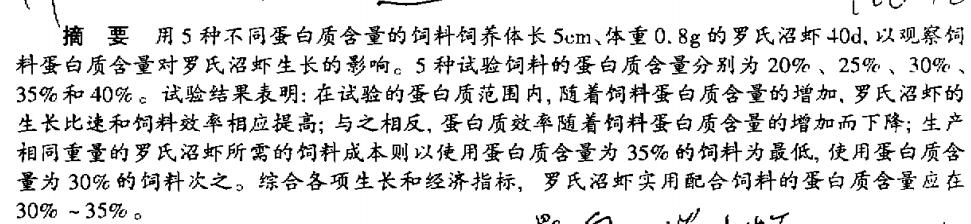 摘 要 用5种不同蛋白质含量的饲料饲养体长5cm、体重0.8g的罗氏沼虾40d,以观察饲
料蛋白质含量对罗氏沼虾生长的影响。5种试验饲料的蛋白质含量分别为20%、25%、30%、
35%和40%。试验结果表明:在试验的蛋白质范围内,随着饲料蛋白质含量的增加,罗氏沼虾的
生长比速和饲料效率相应提高;与之相反,蛋白质效率随着饲料蛋白质含量的增加而下降;生产
相同重量的罗氏沼虾所需的饲料成本则以使用蛋白质含量为35%的饲料为最低,使用蛋白质含
量为30%的饲料次之。综合各项生长和经济指标,罗氏沼虾实用配合饲料的蛋白质含量应在
30%~35%。